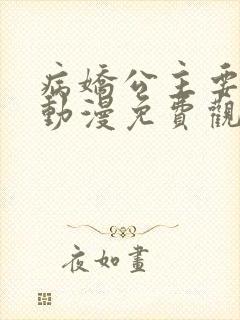 病嬌公主要
動漫免費觀
夜如畫